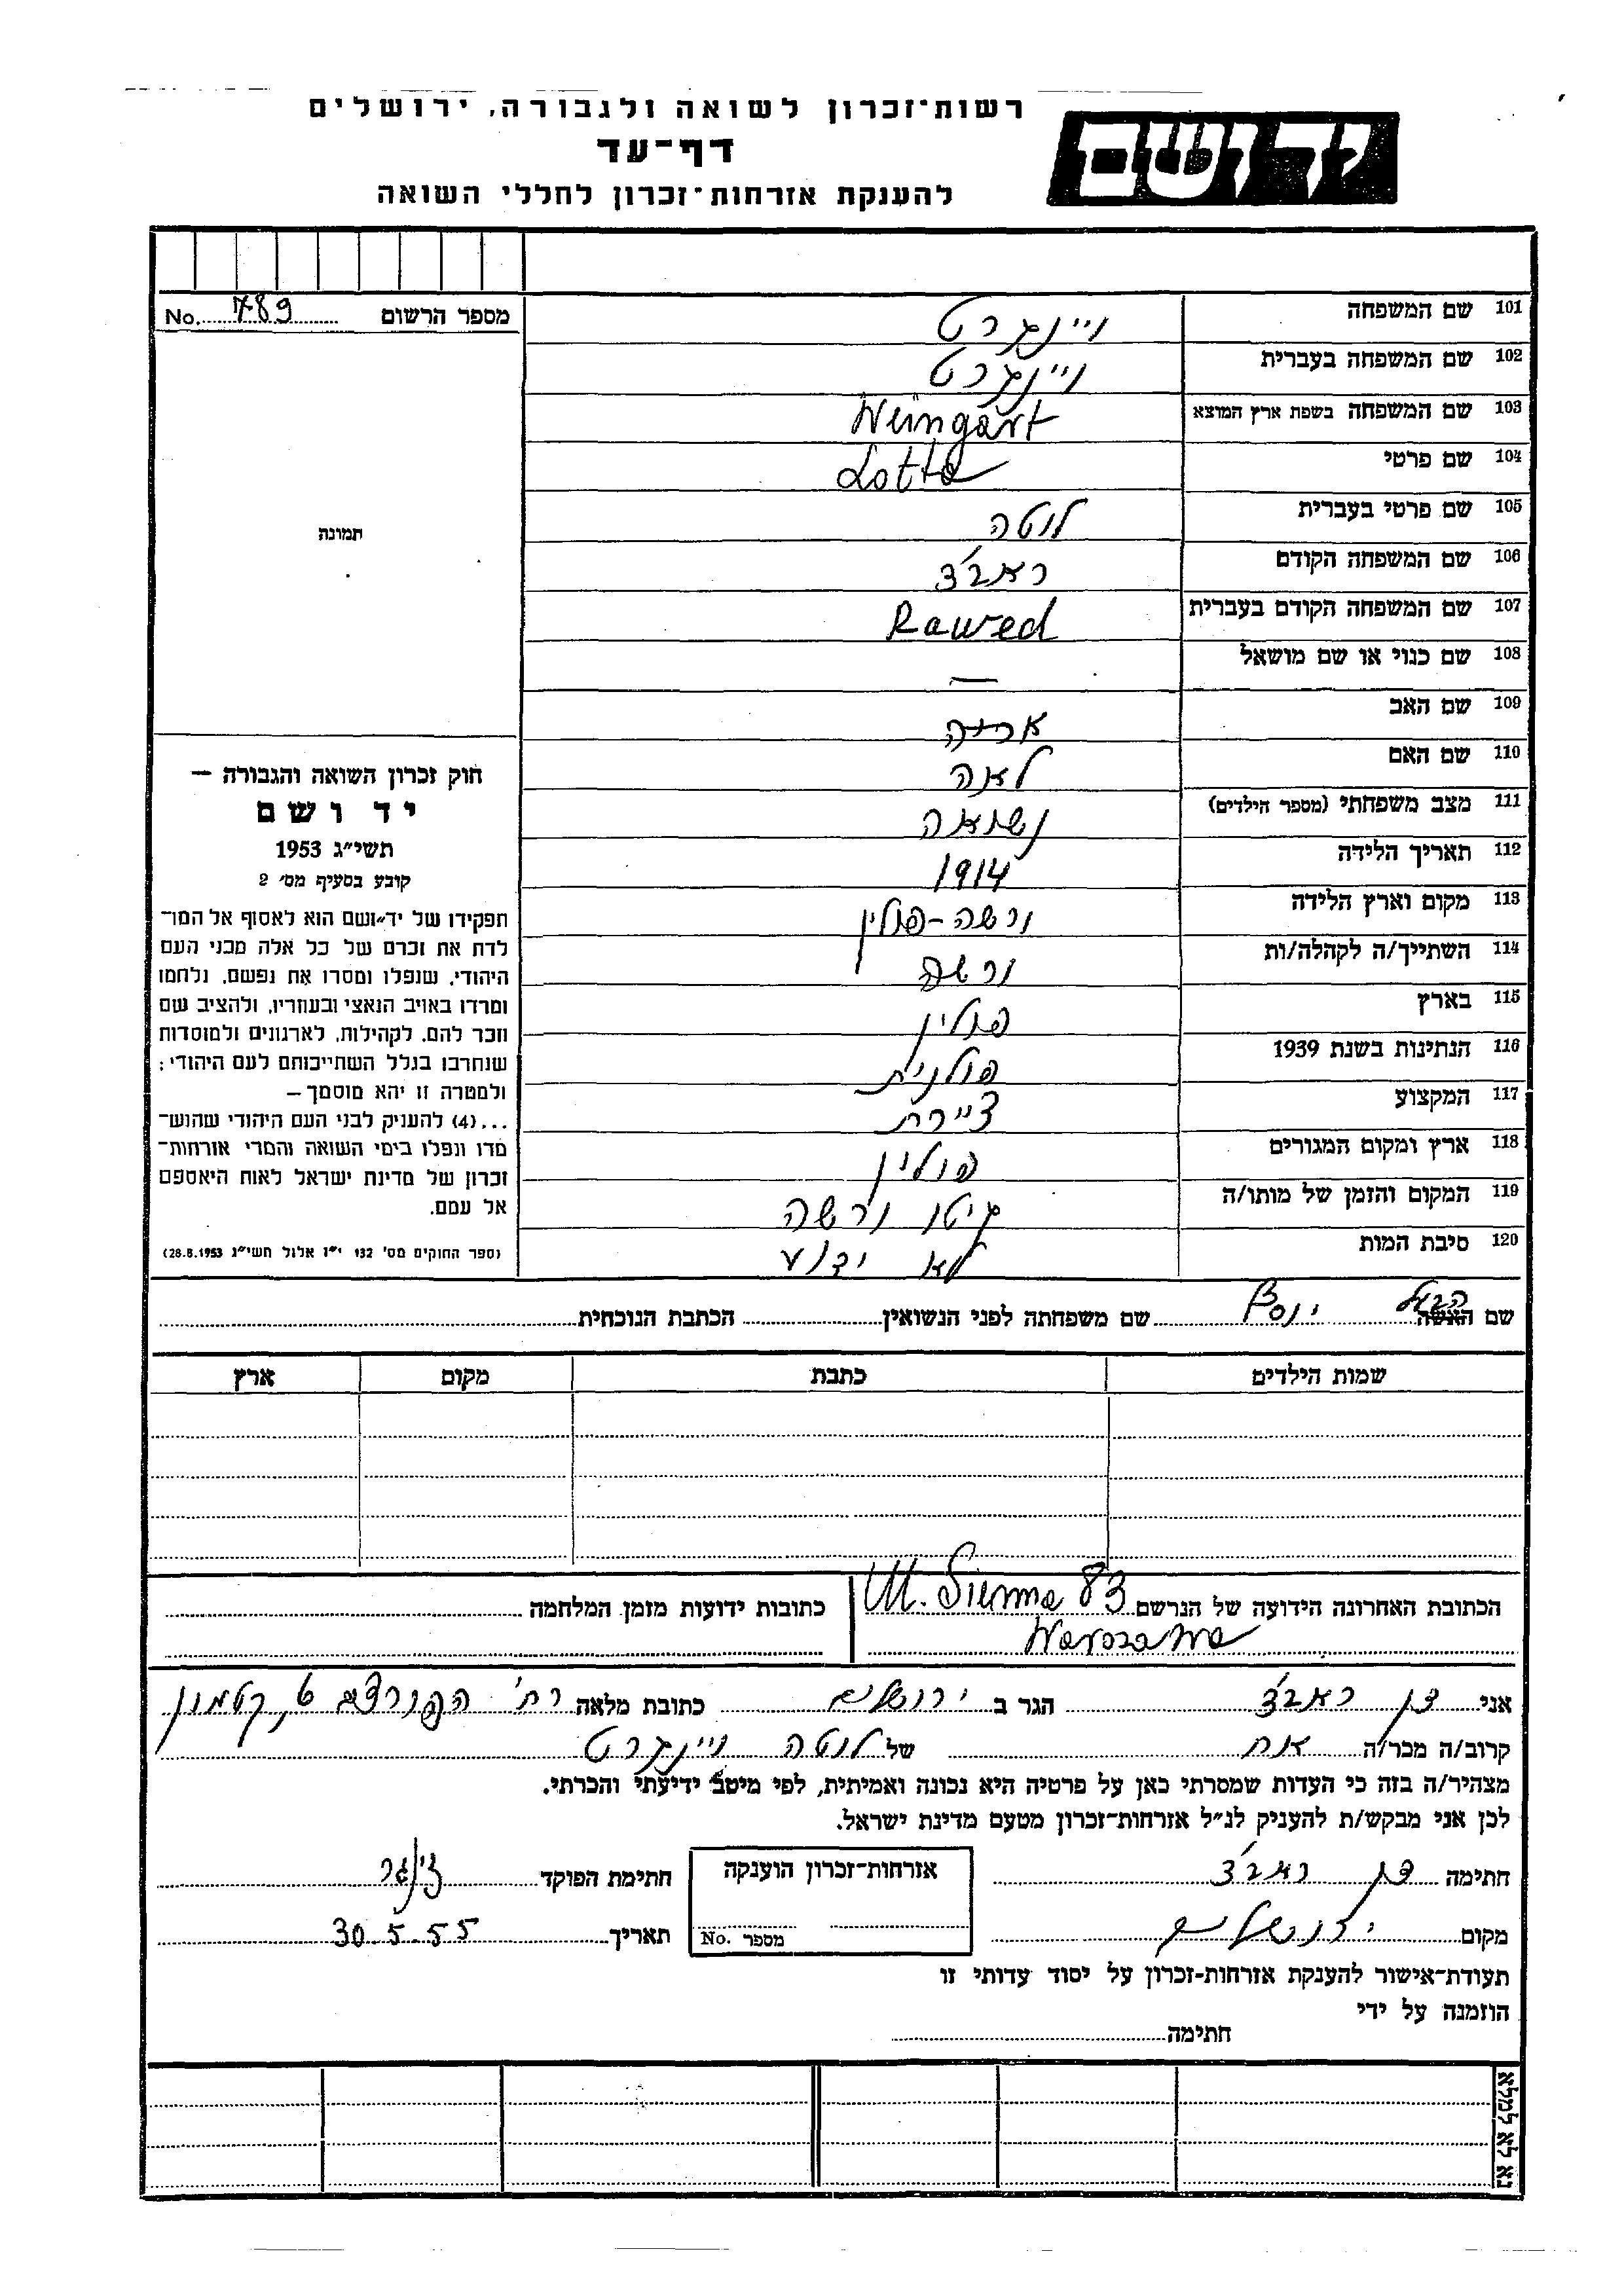 רשות־זכרון לשואה ולגבורה, ירושלים
יד ושם
דף־עד
להענקת אזרחות־זכרון לחללי השואה
מספר הרשום No. 789
101 שם המשפחה ויינגרט
102 שם המשפחה בעברית ויינגרט
103 שם המשפחה בשפת ארץ המוצא Weingart
104 שם פרטי Lotte
105 שם פרטי בעברית לוטה
106 שם המשפחה הקודם ראב׳ד
107 שם המשפחה הקודם בעברית Rawed
108 שם כנוי או שם מושאל —
109 שם האב אריה
110 שם האם לאה
111 מצב משפחתי (מספר הילדים) נשואה
112 תאריך הלידה 1914
113 מקום וארץ הלידה ורשה - פולין
114 השתייך/ה לקהלה/ות ורשה
115 בארץ פולין
116 הנתינות בשנת 1939 פולנית
117 המקצוע ציירת
118 ארץ ומקום המגורים פולין
119 המקום והזמן של מותו/ה גיטו ורשה
120 סיבת המות לא ידוע
תמונה
חוק זכרון השואה והגבורה —
יד ושם
תשי״ג 1953
קובע בסעיף מס׳ 2
תפקידו של יד־ושם הוא לאסוף אל המו־
לדת את זכרם של כל אלה מבני העם
היהודי, שנפלו ומסרו את נפשם, נלחמו
ומרדו באויב הנאצי ובעוזריו, ולהציב שם
וזכר להם, לקהילות, לארגונים ולמוסדות
שנחרבו בגלל השתייכותם לעם היהודי;
ולמטרה זו יהא מוסמך —
...(4) להעניק לבני העם היהודי שהוש־
מדו ונפלו בימי השואה והמרי אזרחות־
זכרון של מדינת ישראל לאות היאספם
אל עמם.
(ספר החוקים מס׳ 132 י״ז אלול תשי״ג 28.8.1953)
שם האשה הבעל יוסף שם משפחתה לפני הנשואין הכתבת הנוכחית
שמות הילדים כתבת מקום ארץ
הכתובת האחרונה הידועה של הנרשם Ul. Sienna 83 כתובות ידועות מזמן המלחמה
Warszawa
אני דן ראב׳ד הגר ב ירושלים כתובת מלאה רח׳ ט, קטמון
קרוב/ה מכר/ה אח של לוטה ויינגרט
מצהיר/ה בזה כי העדות שמסרתי כאן על פרטיה היא נכונה ואמיתית, לפי מיטב ידיעתי והכרתי.
לכן אני מבקש/ת להעניק לנ״ל אזרחות־זכרון מטעם מדינת ישראל.
חתימה דן ראב׳ד אזרחות־זכרון הוענקה חתימת הפוקד
מקום ירושלים מספר No. תאריך 30.5.55
תעודת־אישור להענקת אזרחות־זכרון על יסוד עדותי זו
הוזמנה על ידי
חתימה
נא לא למלא